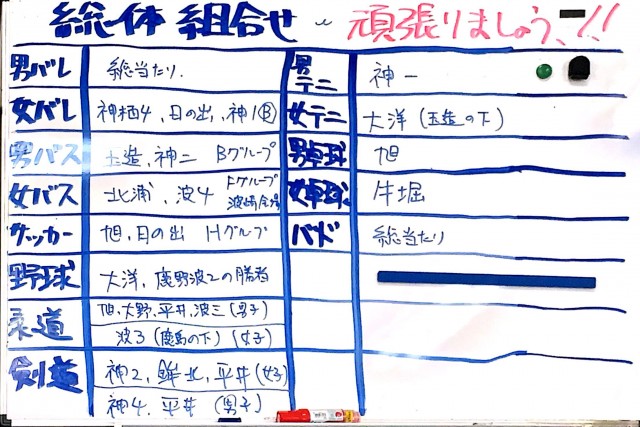 総体 組合せ 〜 頑張りましょう!!
男バレ 総当たり.
女バレ 神栖4、日の出、神1Ⓑ
男バス 玉造、神二 Bグループ
女バス 北浦、波4 Fグループ
波崎会場
サッカー 旭、日の出 Hグループ
野球 大洋、鹿野波2の勝者
柔道 旭、大野、平井、波三(男子)
波3(鹿島の下)(女子)
剣道 神2、鉾北、平井(女子)
神4、平井(男子)
男テニ 神一
女テニ 大洋(玉造の下)
男卓球 旭
女卓球 牛堀
バド 総当たり